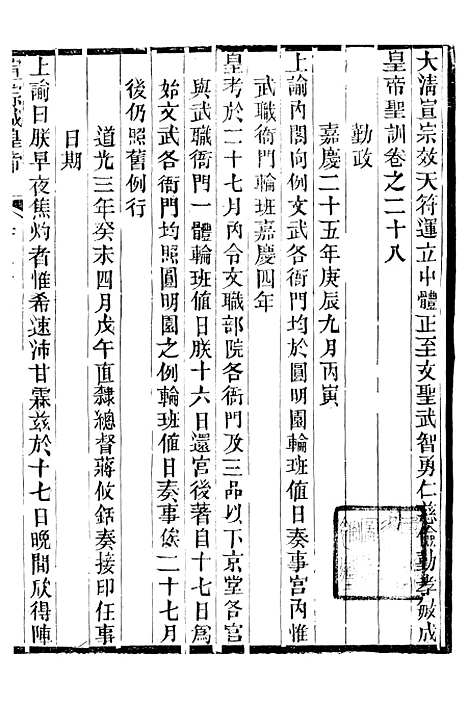 大清宣宗效天符運立中體正至文聖武智勇仁慈儉勤孝敏成
皇帝聖訓卷之二十八
勤政
嘉慶二十五年庚辰九月丙寅
上諭內閣向例文武各衙門均於圓明園輪班值日奏事宮內惟
武職衙門輪班嘉慶四年
皇考於二十七月內令文職部院各衙門及三品以下京堂各官
與武職衙門一體輪班值日朕十六日還宮後著自十七日為
始文武各衙門均照圓明園之例輪班值日奏事俟二十七月
後仍照舊例行
道光三年癸未四月戊午直隸總督蔣攸銛奏接印任事
日期
上諭曰朕早夜焦灼者惟希速沛甘霖茲於十七日晚間欣得陣
宣宗成皇帝